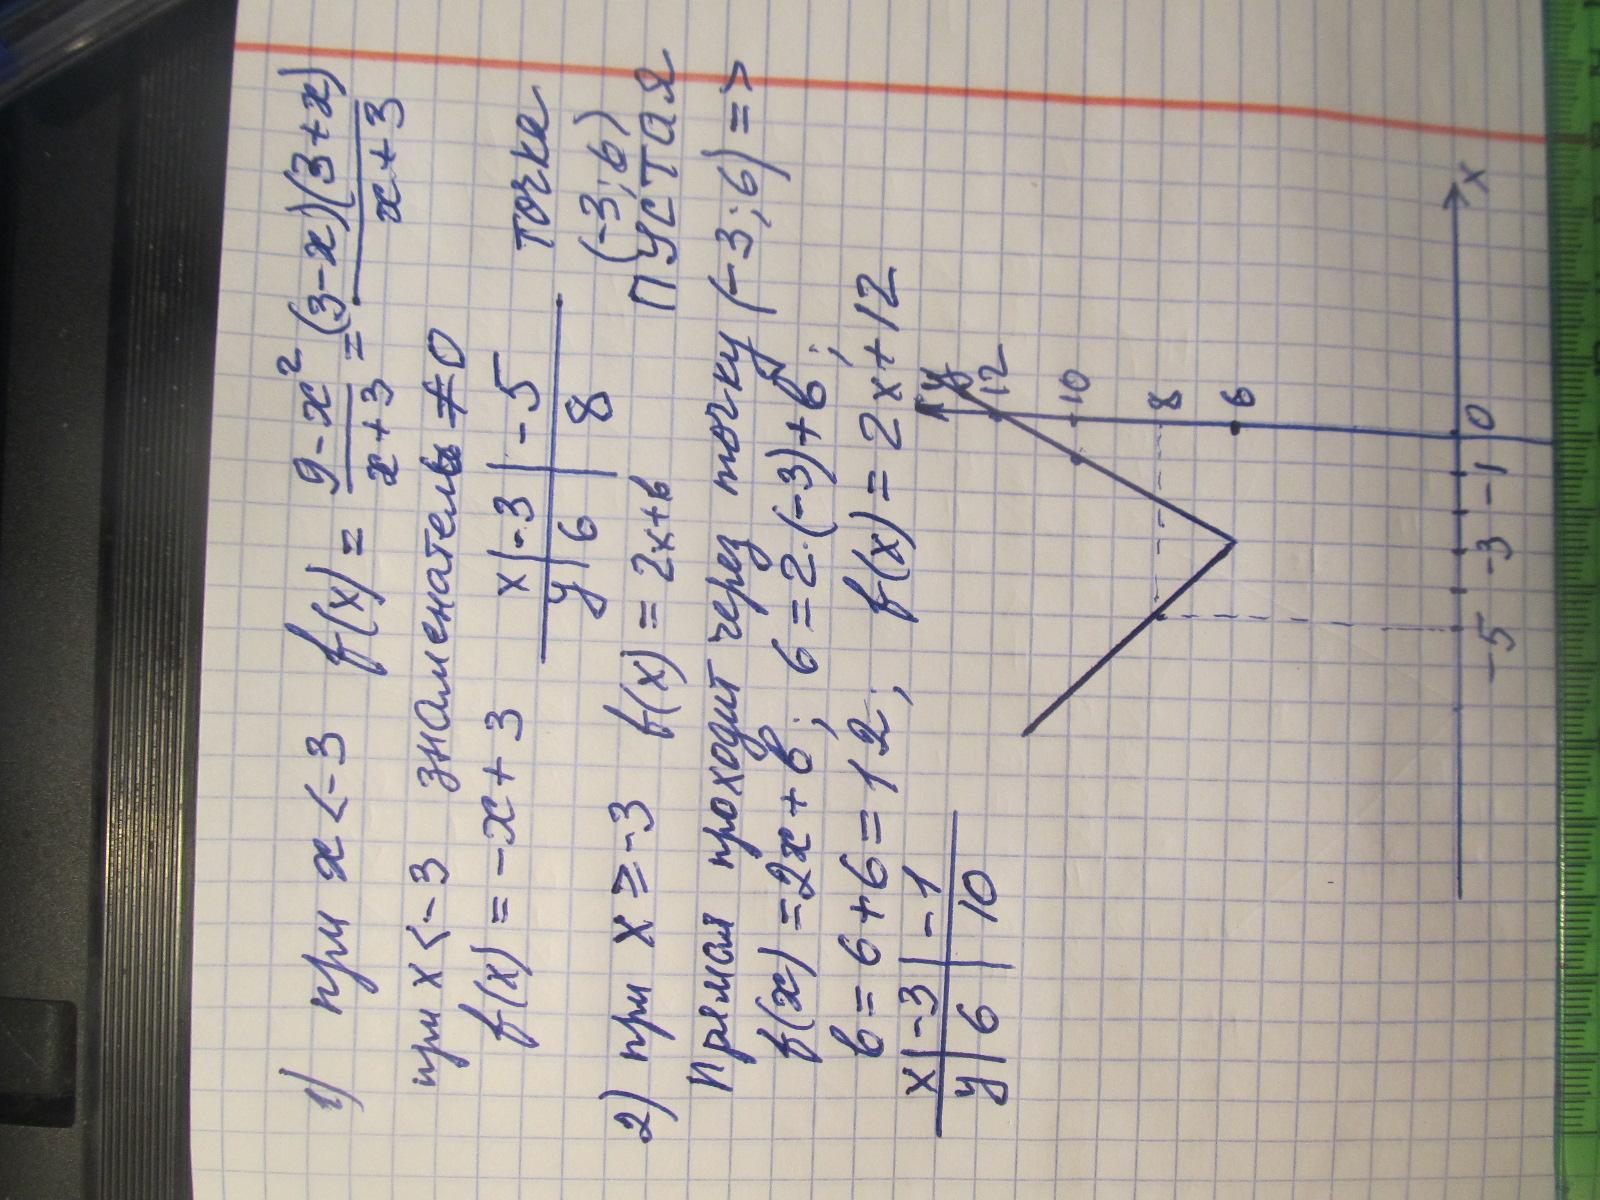 1) при x < -3 f(x) = (9-x²)/(x+3) = ((3-x)(3+x))/(x+3)
при x < -3 знаменатель ≠ 0
f(x) = -x+3
x | -3 | -5
y | 6 | 8
точка
(-3; 6)
пустая
2) при x ≥ -3 f(x) = 2x+b
Прямая проходит через точку (-3; 6) =>
f(x) = 2x+b; 6 = 2·(-3)+b;
b = 6+6 = 12; f(x) = 2x+12
x | -3 | -1
y | 6 | 10
y
12
10
8
6
-5 -3 -1 0 x